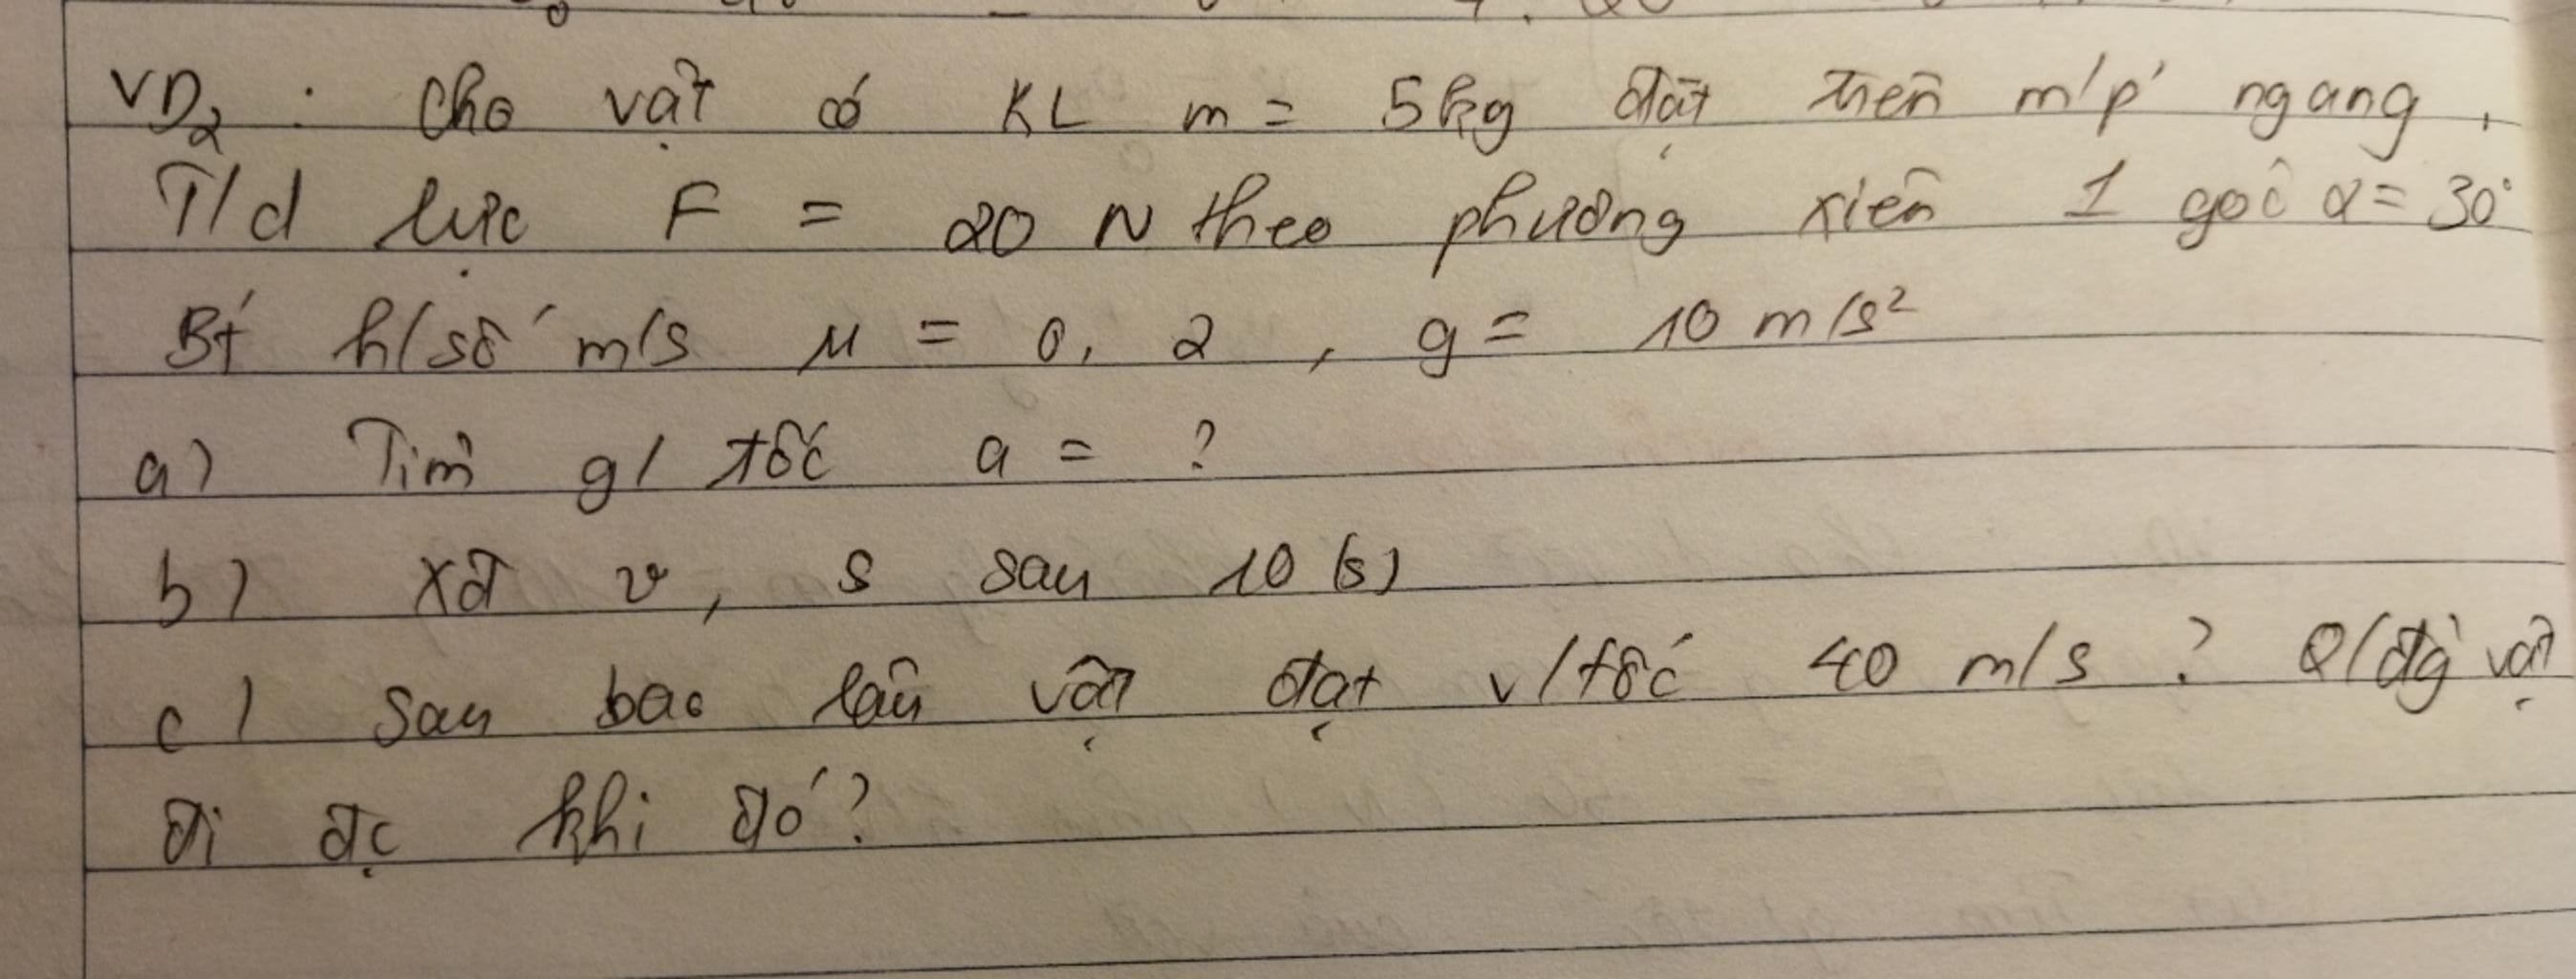 VD2 : Cho vật có KL m = 5kg đặt trên m/p' ngang,
T/d lực F = 20 N theo phương xiên 1 góc α = 30°
Bt' h/số m/s μ = 0,2, g = 10 m/s²
a) Tìm g/tốc a = ?
b) XĐ v, s sau 10 (s)
c) Sau bao lâu vật đạt v/tốc 40 m/s ? Q/đg` vật
đi đc khi đó?